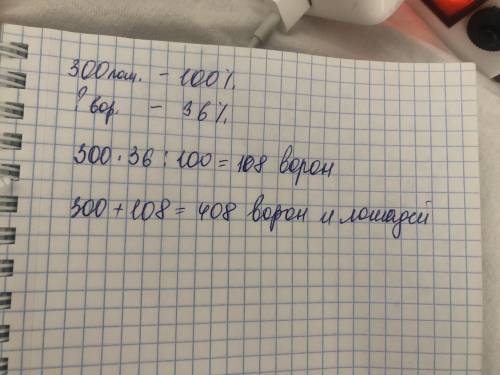 300 лош. - 100%
? вор. - 36%
300 · 36 : 100 = 108 ворон
300 + 108 = 408 ворон и лошадей